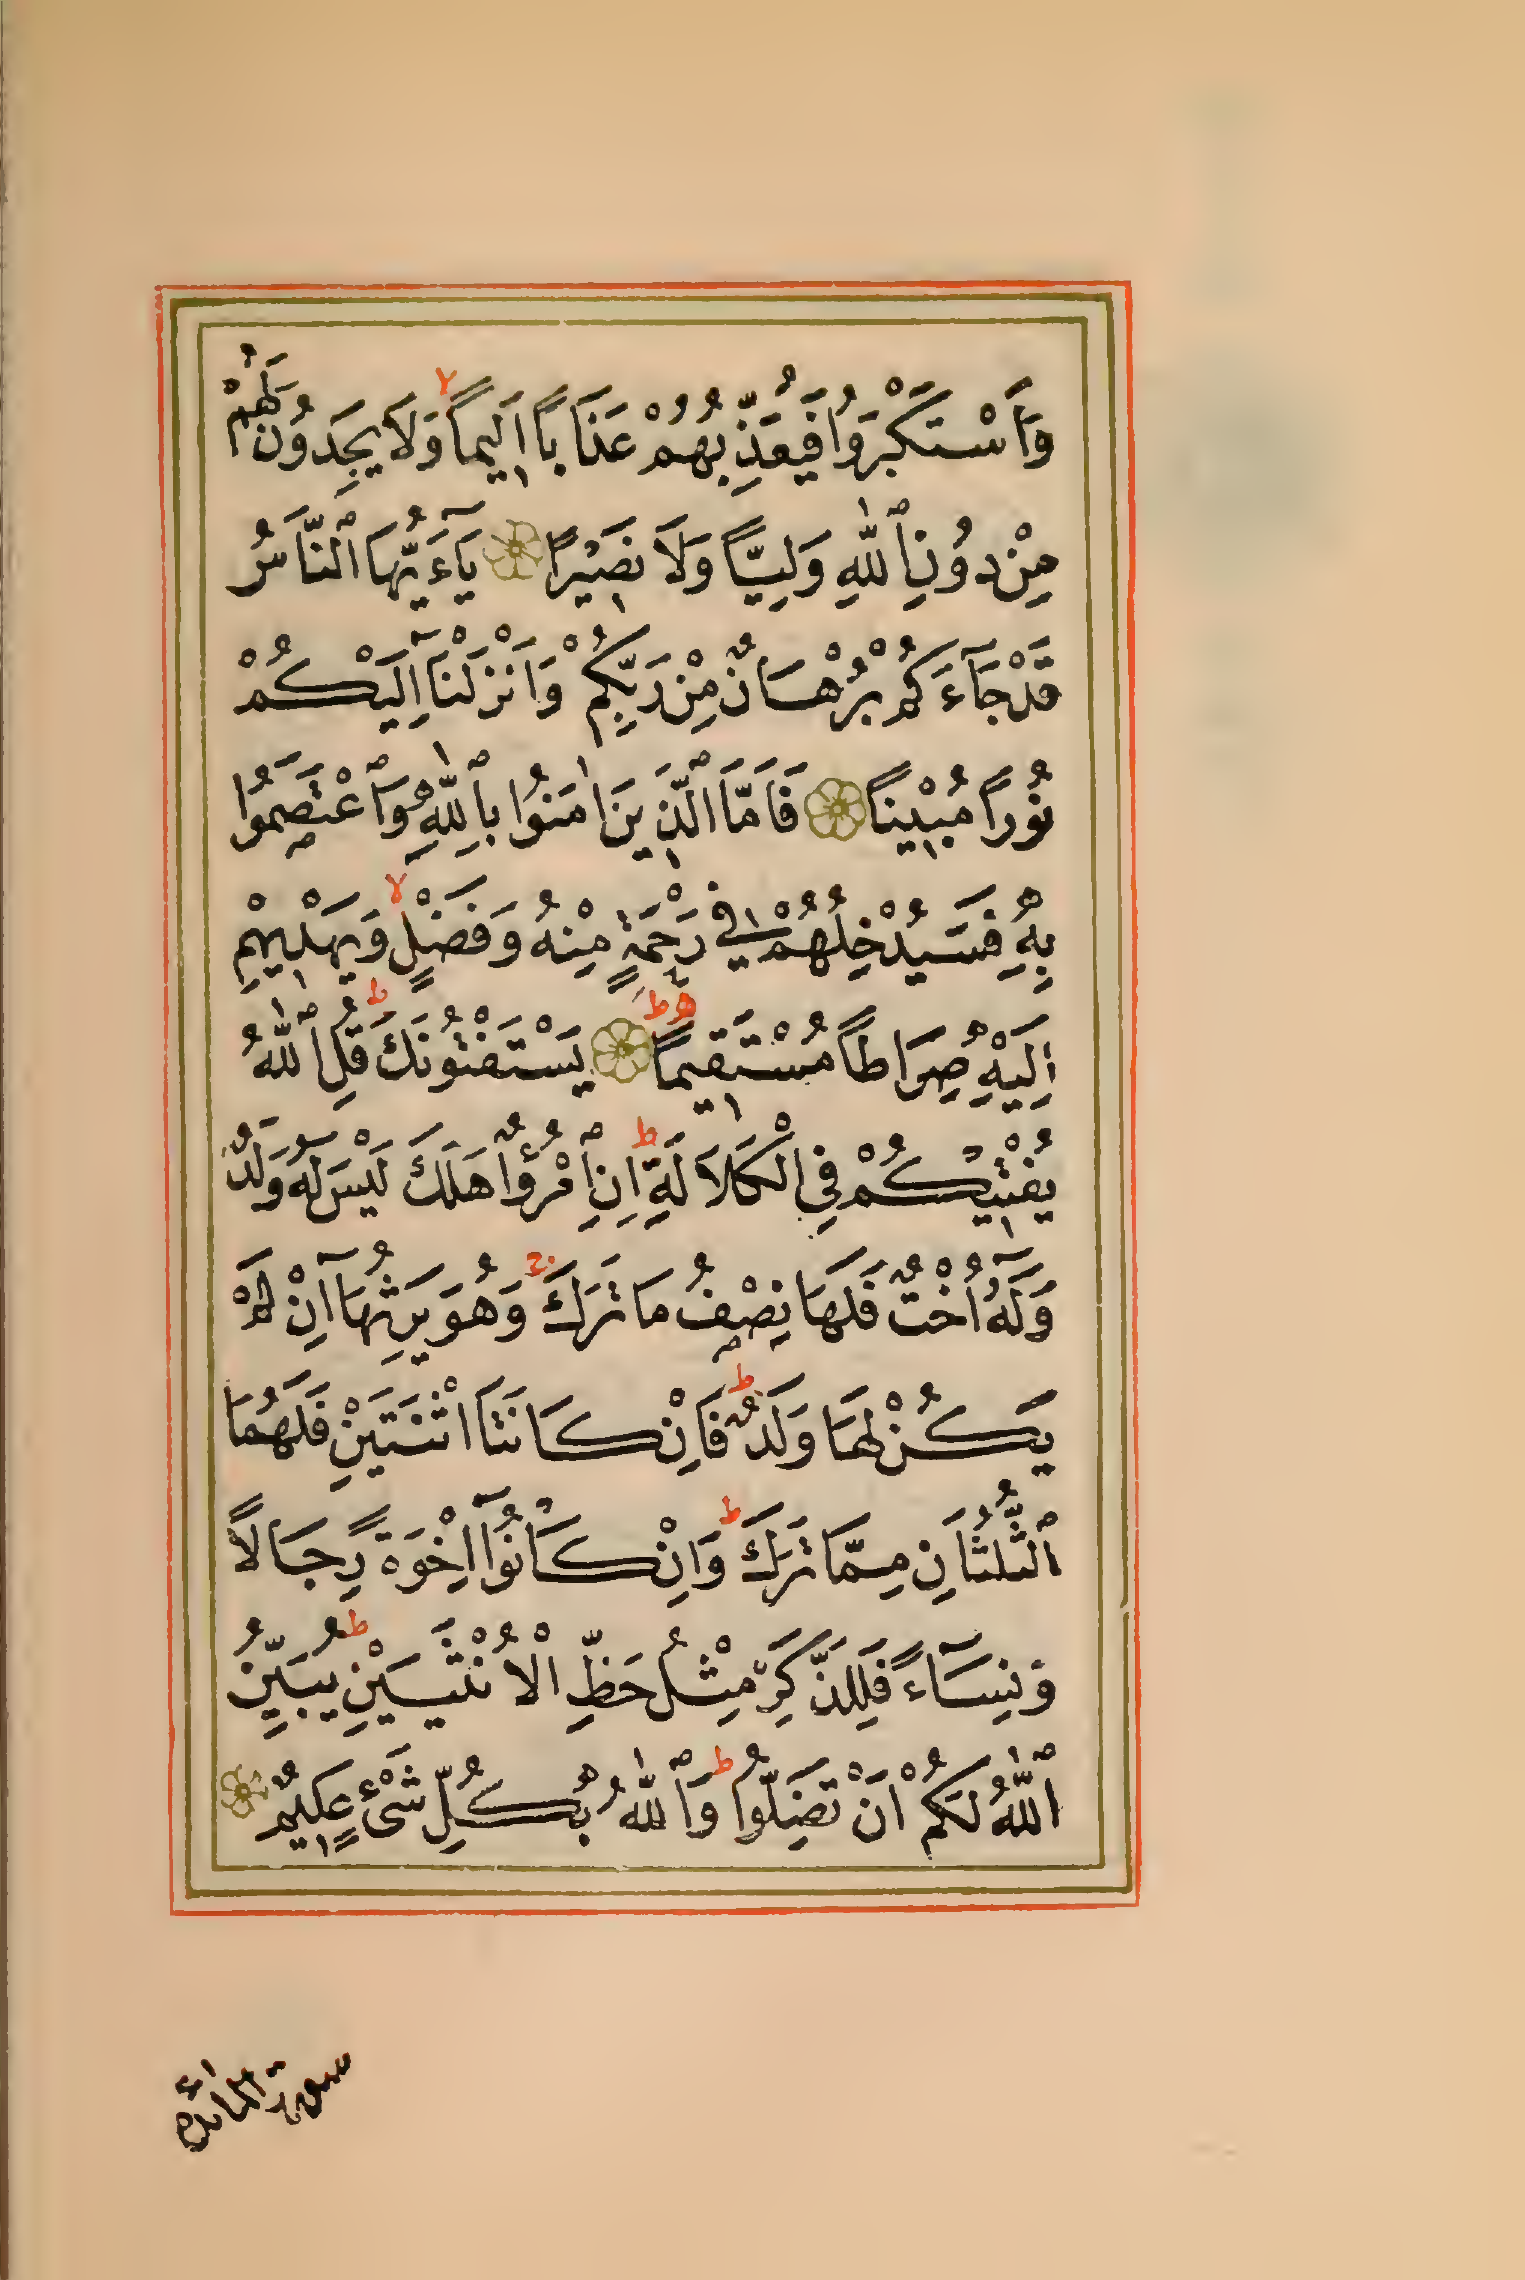 وَاَسْتَكْبَرُوا فَيُعَذِّبُهُمْ عَذَابًا اَلِيمًا وَلَا يَجِدُونَ لَهُمْ
مِنْ دُونِ ٱللّٰهِ وَلِيًّا وَلَا نَصِيْرًا يَآءَيُّهَا ٱلنَّاسُ
قَدْ جَآءَكُمْ بُرْهَانٌ مِنْ رَبِّكُمْ وَاَنْزَلْنَآ اِلَيْكُمْ
نُورًا مُبِيْنًا فَاَمَّا ٱلَّذِينَ اٰمَنُوا بِٱللّٰهِ وَٱعْتَصَمُوا
بِهِ فَسَيُدْخِلُهُمْ فِي رَحْمَةٍ مِنْهُ وَفَضْلٍ وَيَهْدِيهِمْ
اِلَيْهِ صِرَاطًا مُسْتَقِيمًا يَسْتَفْتُونَكَ قُلِ ٱللّٰهُ
يُفْتِيْكُمْ فِي الْكَلَالَةِ اِنِ ٱمْرُؤٌا هَلَكَ لَيْسَ لَهُ وَلَدٌ
وَلَهُ اُخْتٌ فَلَهَا نِصْفُ مَا تَرَكَ وَهُوَ يَرِثُهَآ اِنْ لَمْ
يَكُنْ لَهَا وَلَدٌ فَاِنْ كَانَتَا اثْنَتَيْنِ فَلَهُمَا
ٱلثُّلُثَانِ مِمَّا تَرَكَ وَاِنْ كَانُوٓا اِخْوَةً رِجَالًا
وَنِسَآءً فَلِلذَّكَرِ مِثْلُ حَظِّ الْاُنْثَيَيْنِ يُبَيِّنُ
ٱللّٰهُ لَكُمْ اَنْ تَضِلُّوا وَٱللّٰهُ بِكُلِّ شَىْءٍ عَلِيمٌ
سورة المائدة